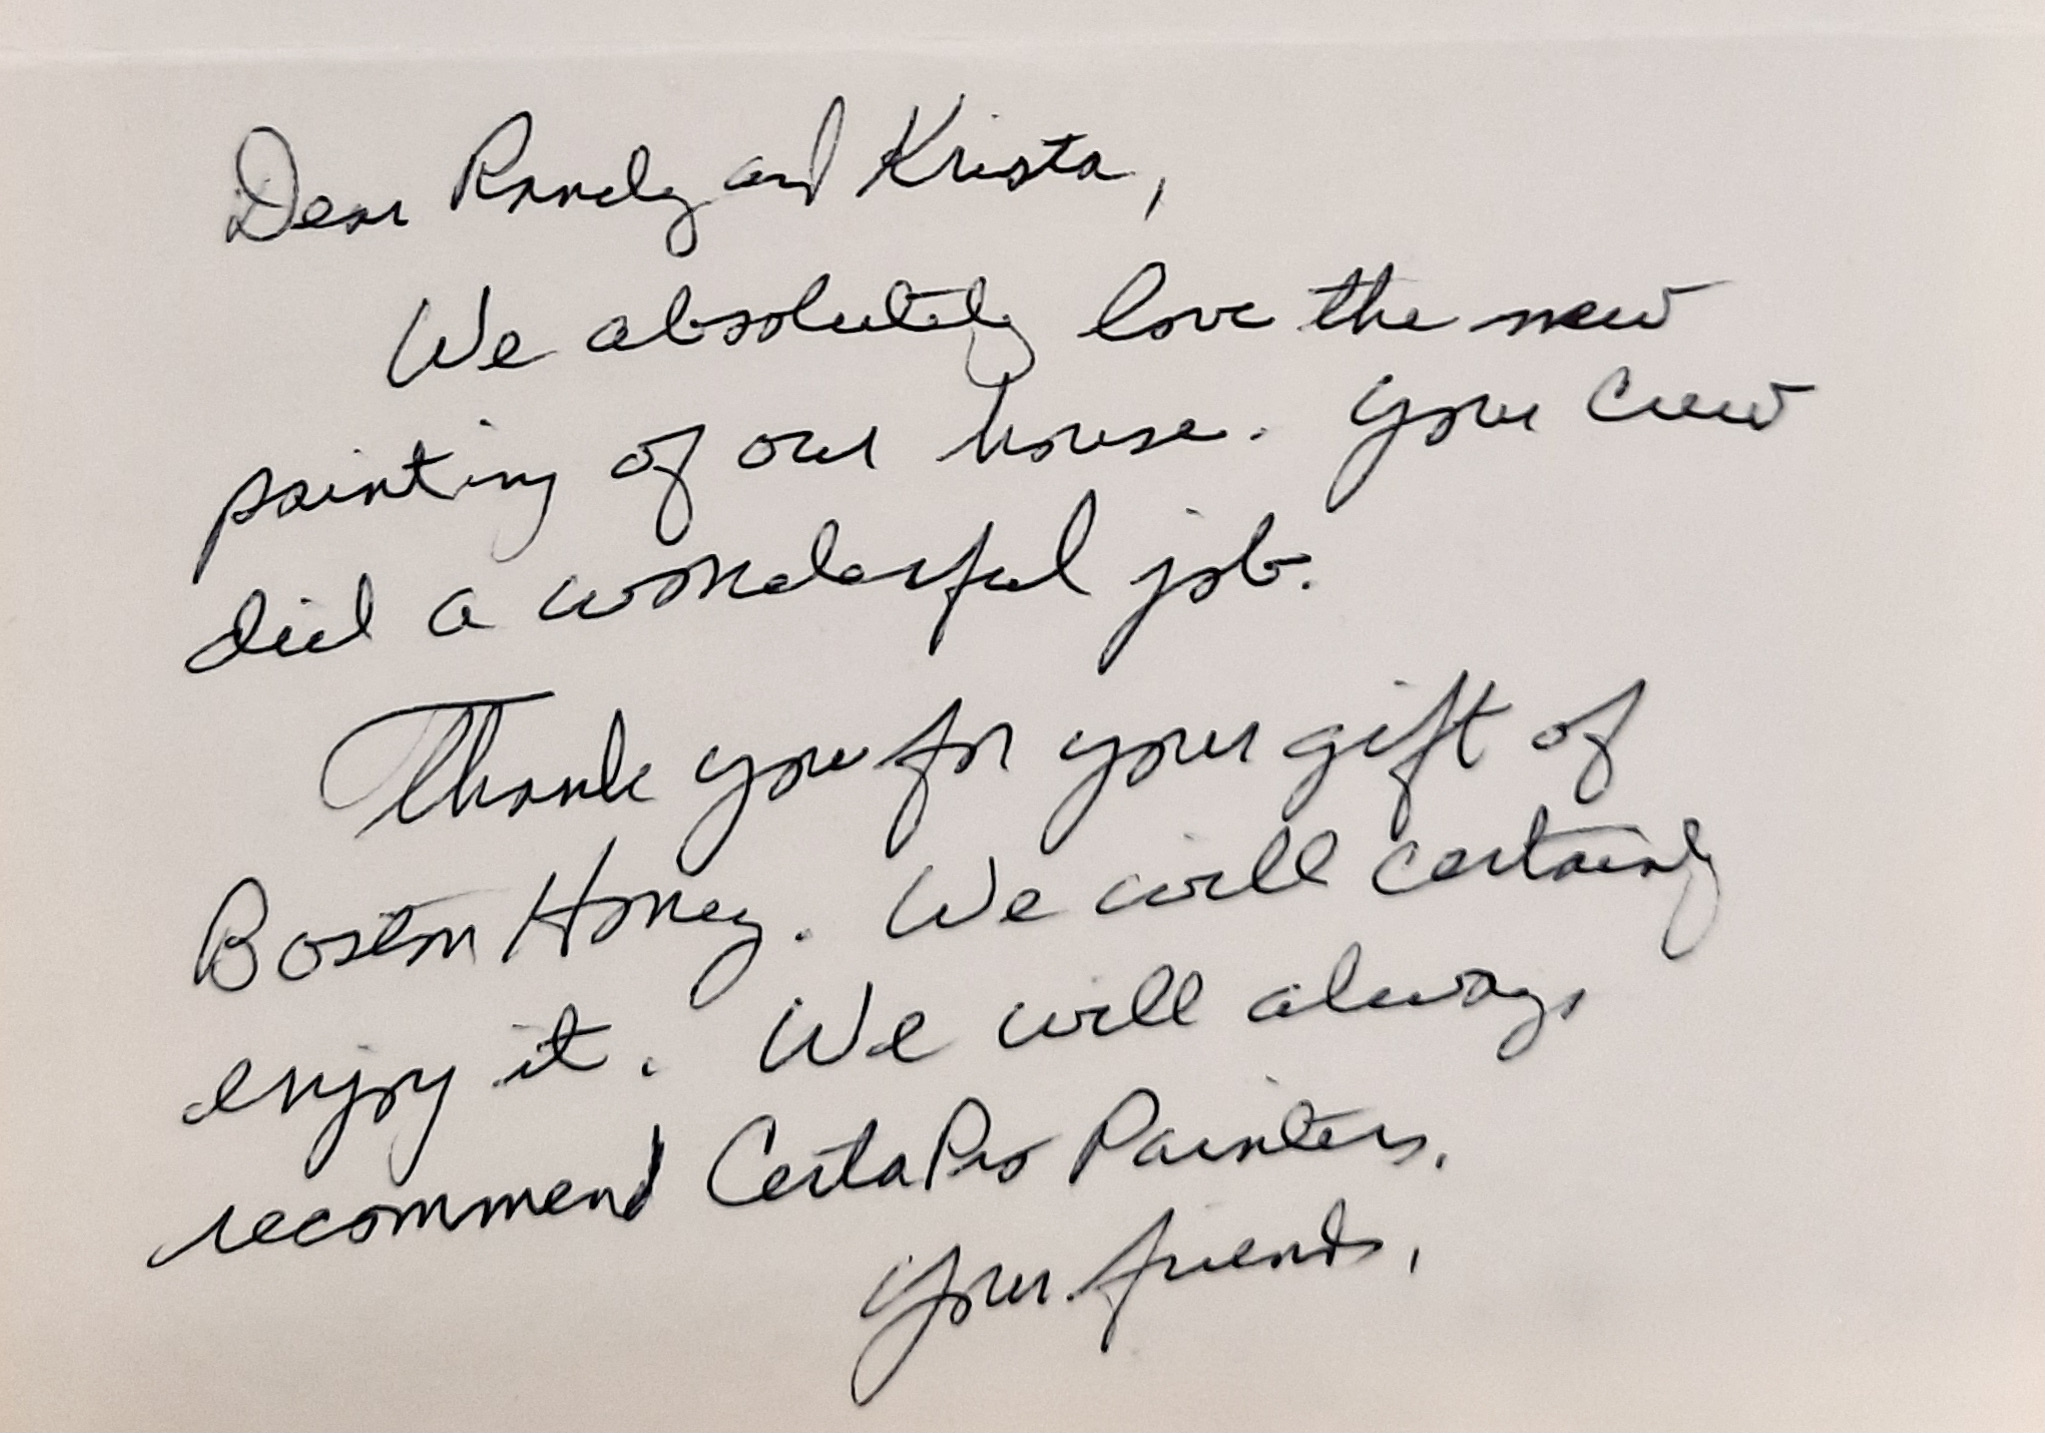 Dear Randy and Krista,
We absolutely love the new
painting of our house. Your crew
did a wonderful job.
Thank you for your gift of
Boston Honey. We will certainly
enjoy it. We will always
recommend CertaPro Painters.
Your friends,